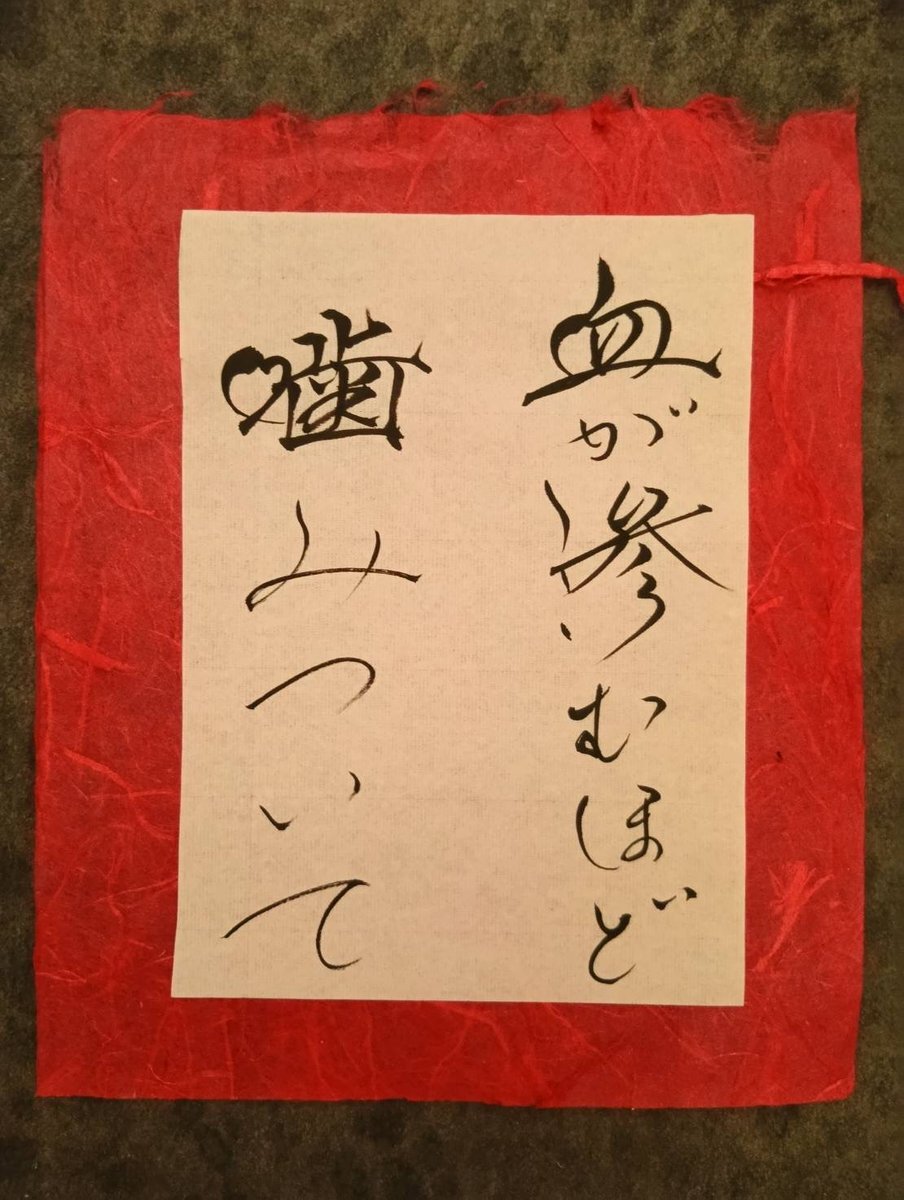 血が滲むほど
噛みついて